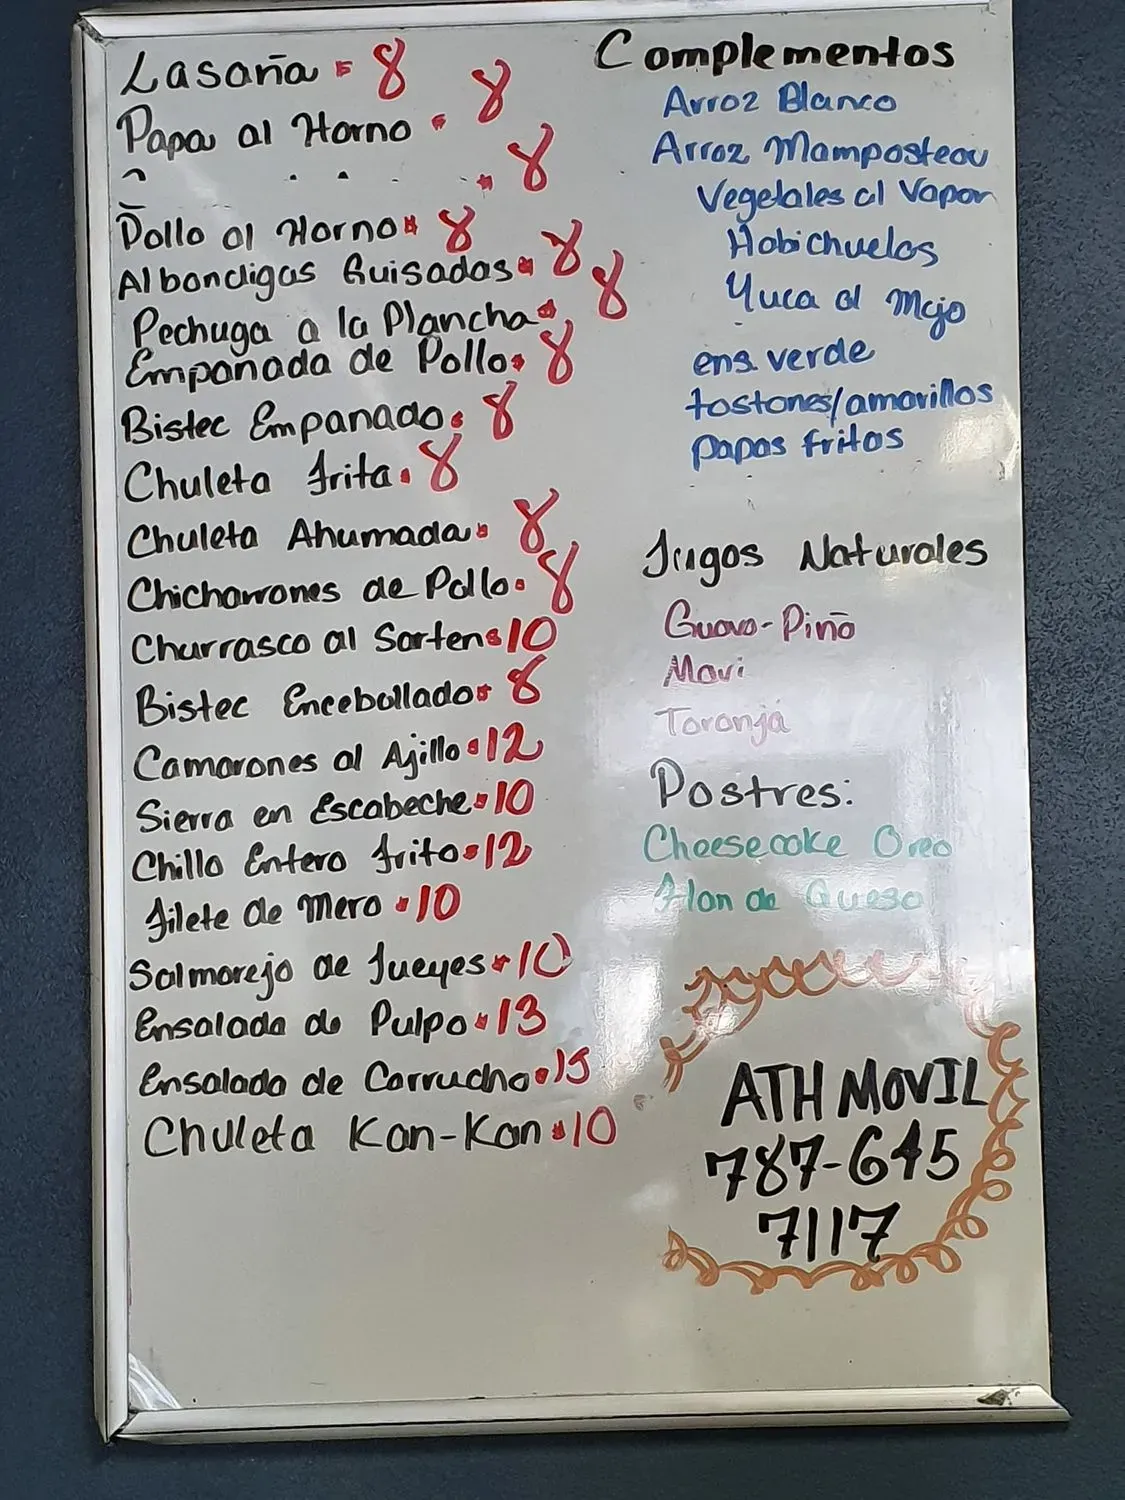 Lasaña 8
Papa al Horno 8
8
Pollo al Horno 8
Albondigas Guisadas 8
Pechuga a la Plancha 8
Empanada de Pollo 8
Bistec Empanado 8
Chuleta Frita 8
Chuleta Ahumada 8
Chicharrones de Pollo 8
Churrasco al Sarten 10
Bistec Encebollado 8
Camarones al Ajillo 12
Sierra en Escabeche 10
Chillo Entero Frito 12
Filete de Mero 10
Salmorejo de Jueyes 10
Ensalada de Pulpo 13
Ensalada de Carrucho 15
Chuleta Kan-Kan 10
Complementos
Arroz Blanco
Arroz Mamposteau
Vegetales al Vapor
Habichuelas
Yuca al Mojo
ens. verde
tostones/amarillos
papas fritas
Jugos Naturales
Guava-Piña
Mavi
Toronja
Postres:
Cheesecake Oreo
Flan de Queso
ATH MOVIL
787-645
7117